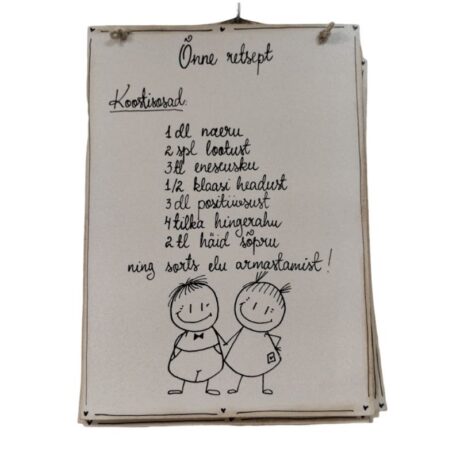 Õnne retsept
Koostisosad:
1 dl naeru
2 spl lootust
3 tl eneseusku
1/2 klaasi headust
3 dl positiivsust
4 tilka hingerahu
2 tl häid sõpru
ning sorts elu armastamist!